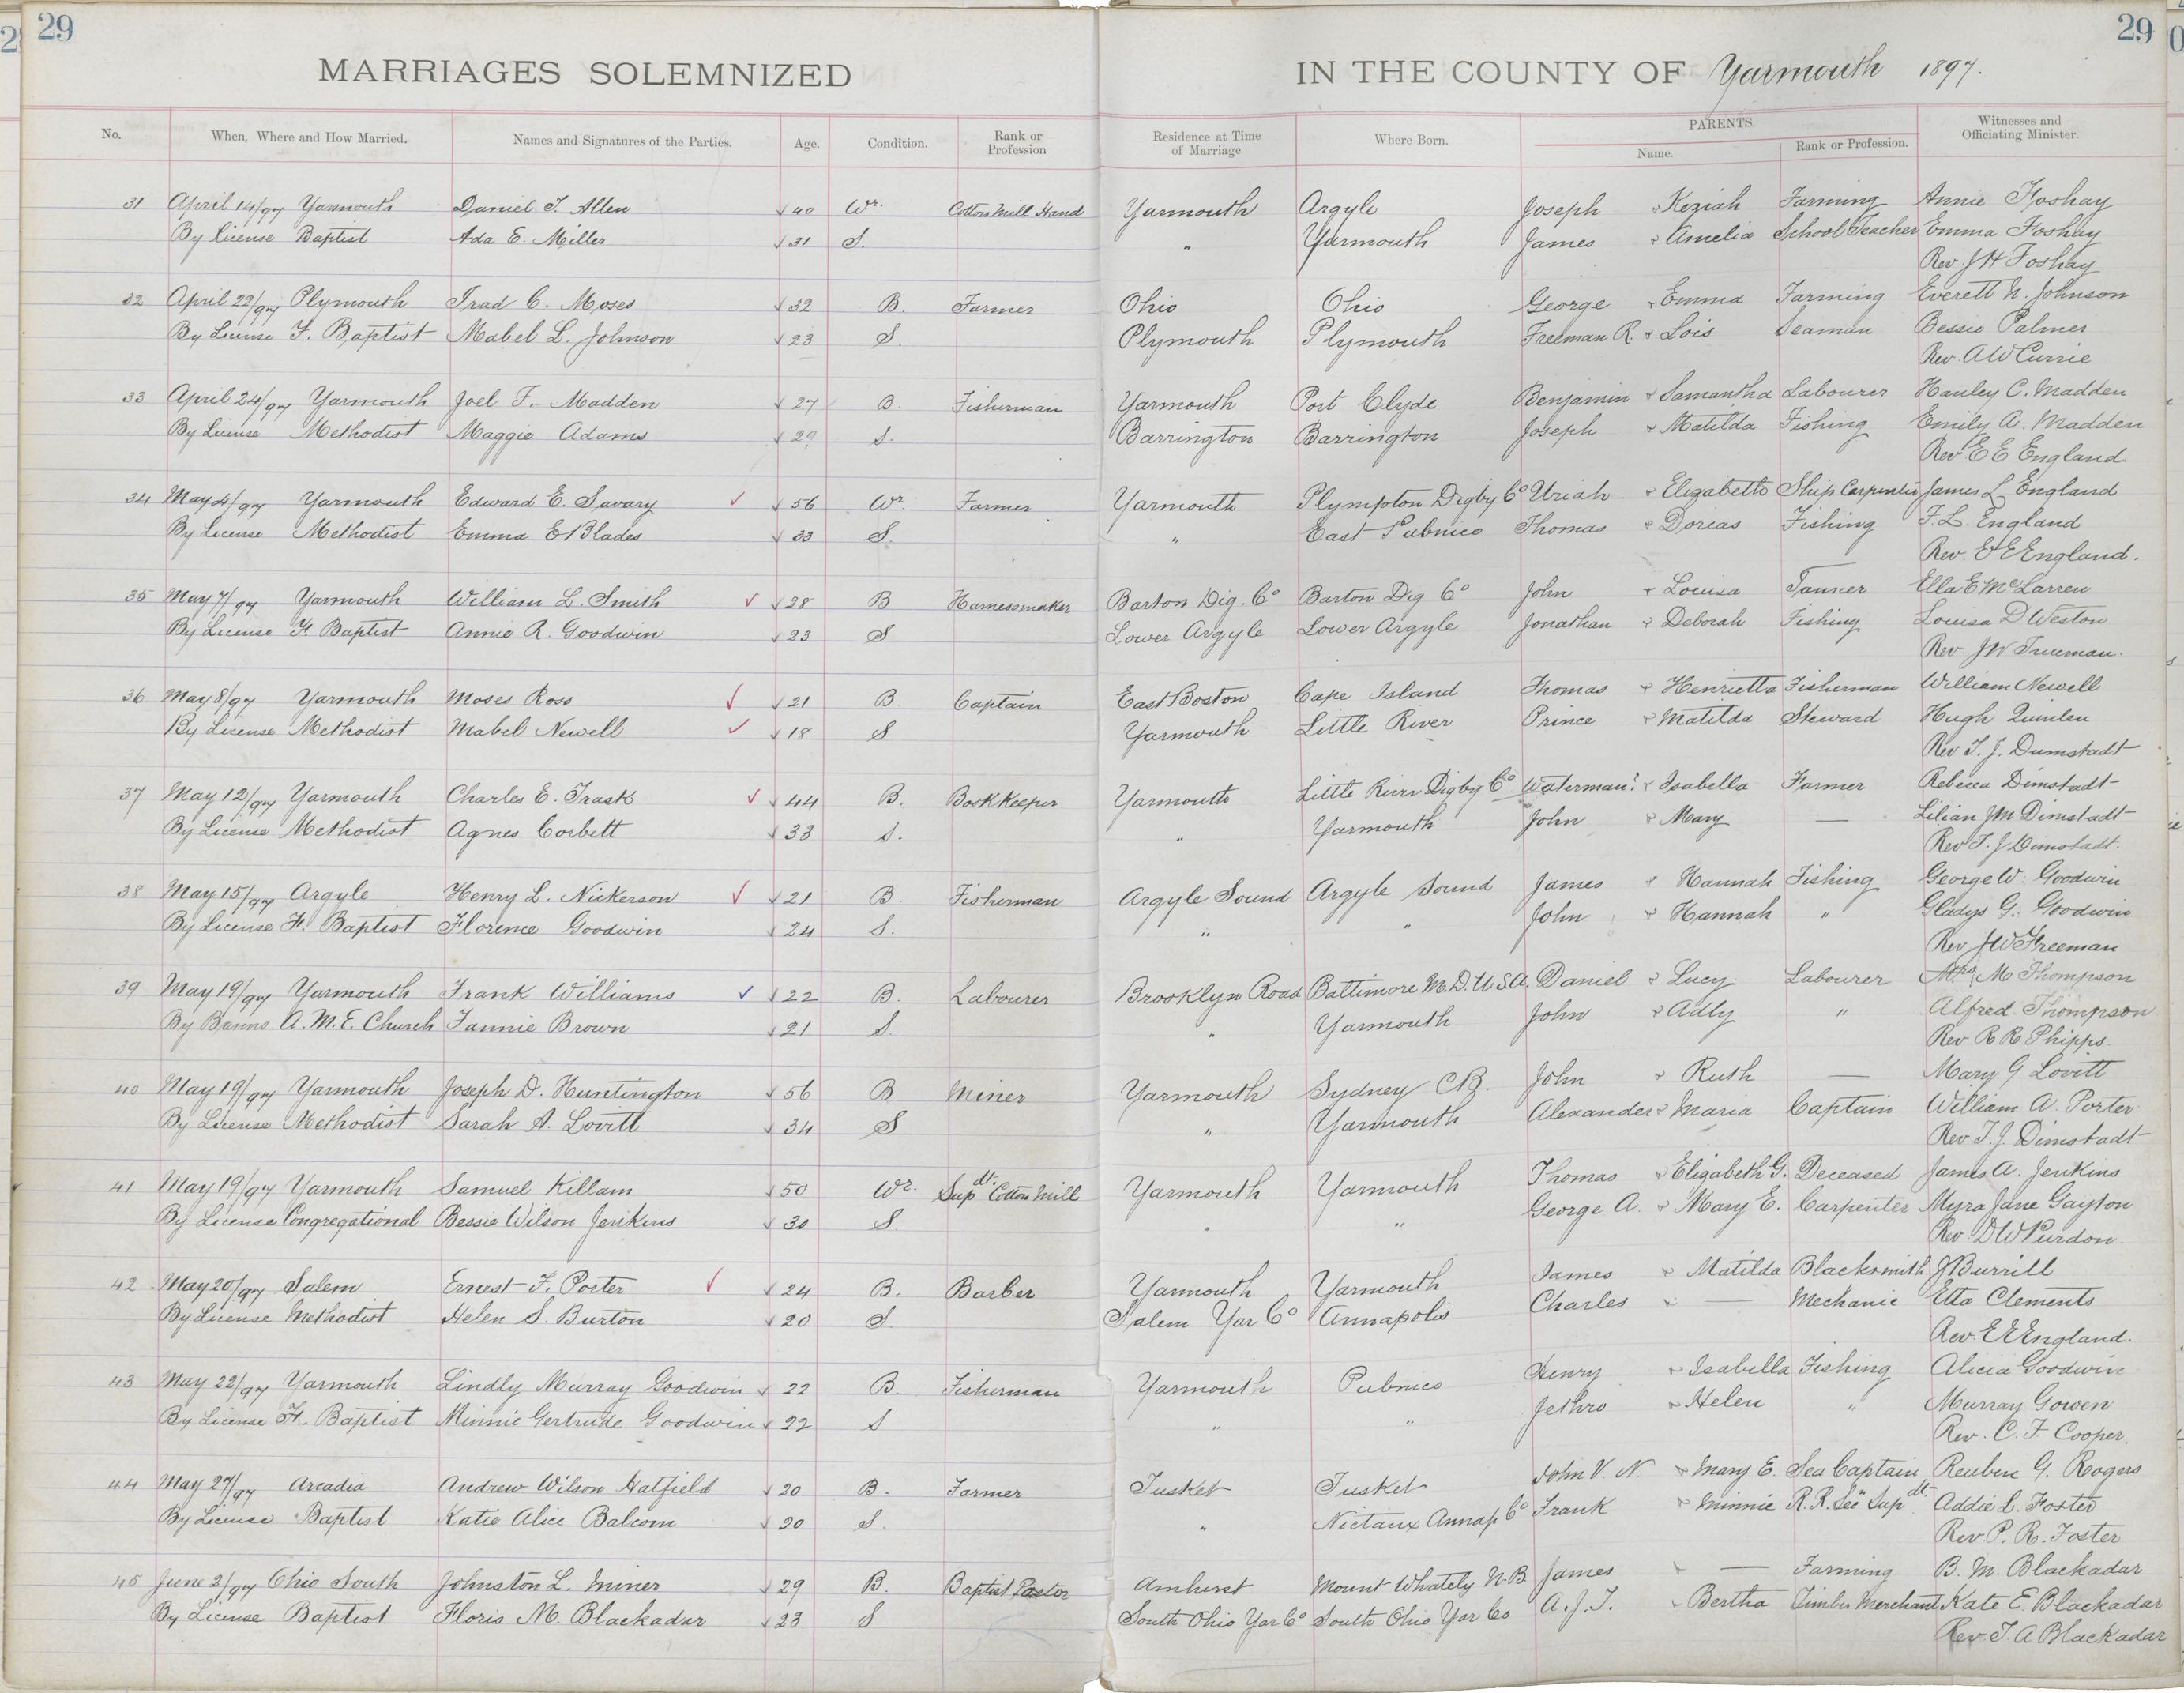 29
29
MARRIAGES SOLEMNIZED IN THE COUNTY OF Yarmouth 1897.
No. When, Where and How Married. Names and Signatures of the Parties. Age. Condition. Rank or Profession Residence at Time of Marriage Where Born. PARENTS. Name. Rank or Profession. Witnesses and Officiating Minister.
31 April 14/97 Yarmouth Daniel T. Allen 40 Wr. Cotton Mill Hand Yarmouth Argyle Joseph & Keziah Farming Annie Foshay
By License Baptist Ada E. Miller 31 S. " Yarmouth James & Amelia School Teacher Emma Foshay
Rev. J H Foshay
32 April 22/97 Plymouth Trad C. Moses 32 B. Farmer Ohio Ohio George & Emma Farming Everett N. Johnson
By License F. Baptist Mabel L. Johnson 23 S. Plymouth Plymouth Freeman R. & Lois Seaman Bessie Palmer
Rev. A W Currie
33 April 24/97 Yarmouth Joel F. Madden 27 B. Fisherman Yarmouth Port Clyde Benjamin & Samantha Labourer Hanley C. Madden
By License Methodist Maggie Adams 29 S. Barrington Barrington Joseph & Matilda Fishing Emily A. Madden
Rev E E England
34 May 4/97 Yarmouth Edward E. Savary 56 Wr Farmer Yarmouth Plympton Digby Co Uriah & Elizabeth Ship Carpenter James L England
By License Methodist Emma E Blades 33 S. " East Pubnico Thomas & Dorcas Fishing F. L. England
Rev. E E England.
35 May 7/97 Yarmouth William L. Smith 28 B Harnessmaker Barton Dig. Co Barton Dig Co John & Louisa Tanner Ella E McLarren
By License F. Baptist Annie R. Goodwin 23 S Lower Argyle Lower Argyle Jonathan & Deborah Fishing Louisa D Weston
Rev. J W Freeman.
36 May 8/97 Yarmouth Moses Ross 21 B Captain East Boston Cape Island Thomas & Henrietta Fisherman William Newell
By License Methodist Mabel Newell 18 S Yarmouth Little River Prince & Matilda Steward Hugh Quinlen
Rev T. J. Dumstadt
37 May 12/97 Yarmouth Charles E. Trask 44 B. Book Keeper Yarmouth Little River Digby Co Waterman? & Isabella Farmer Rebecca Dimstadt
By License Methodist Agnes Corbett 33 S. " Yarmouth John & Mary — Lilian J M Dimstadt
Rev T. J Dimstadt.
38 May 15/97 Argyle Henry L. Nickerson 21 B. Fisherman Argyle Sound Argyle Sound James & Hannah Fishing George W. Goodwin
By License F. Baptist Florence Goodwin 24 S. " " John & Hannah " Gladys G. Goodwin
Rev J W Freeman
39 May 19/97 Yarmouth Frank Williams 22 B. Labourer Brooklyn Road Baltimore M.D. U.S.A. Daniel & Lucy Labourer Mrs. M Thompson
By Banns A. M. E. Church Fannie Brown 21 S. " Yarmouth John & Adly " Alfred Thompson
Rev. R R Phipps.
40 May 19/97 Yarmouth Joseph D. Huntington 56 B Miner Yarmouth Sydney C B. John & Ruth — Mary G Lovitt
By License Methodist Sarah A. Lovitt 34 S " Yarmouth Alexander & Maria Captain William A. Porter
Rev. T. J. Dimstadt
41 May 19/97 Yarmouth Samuel Killam 50 Wr. Supdt. Cotton Mill Yarmouth Yarmouth Thomas & Elizabeth G. Deceased James A. Jenkins
By License Congregational Bessie Wilson Jenkins 30 S. " " George A. & Mary E. Carpenter Myra Jane Gayton
Rev D W Purdon.
42 May 20/97 Salem Ernest F. Porter 24 B. Barber Yarmouth Yarmouth James & Matilda Blacksmith J Burrill
By License Methodist Helen S. Burton 20 S. Salem Yar Co Annapolis Charles & — Mechanic Etta Clements
Rev. E E England.
43 May 22/97 Yarmouth Lindly Murray Goodwin 22 B. Fisherman Yarmouth Pubnico Henry & Isabella Fishing Alicia Goodwin
By License F. Baptist Minnie Gertrude Goodwin 22 S " " Jethro & Helen " Murray Gowen
Rev. C. F Cooper.
44 May 27/97 Arcadia Andrew Wilson Hatfield 20 B. Farmer Tusket Tusket John V. N. & Mary E. Sea Captain Reuben G. Rogers
By License Baptist Katie Alice Balcom 20 S. " Nictaux Annap Co Frank & Minnie R. R. Secn Supdt Addie L. Foster
Rev P. R. Foster
45 June 2/97 Ohio South Johnston L. Miner 29 B. Baptist Pastor Amherst Mount Whately N. B. James & — Farming B. M. Blackadar
By License Baptist Floris M. Blackadar 23 S South Ohio Yar Co South Ohio Yar Co A. J. T. & Bertha Timber Merchant Kate E. Blackadar
Rev. T. A Blackadar